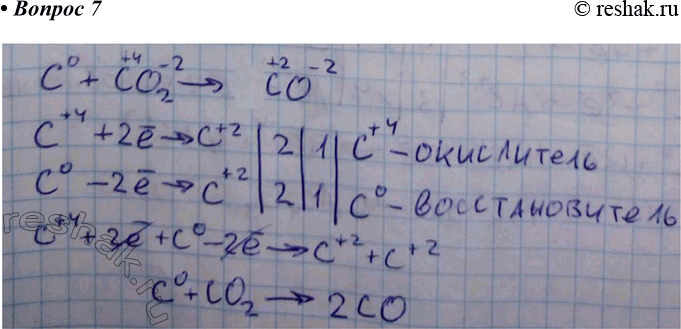 • Вопрос 7
© reshak.ru
C⁰ + C⁺⁴O₂⁻² → C⁺²O⁻²
C⁺⁴ + 2ē → C⁺² | 2 | 1 | C⁺⁴ - окислитель
C⁰ - 2ē → C⁺² | 2 | 1 | C⁰ - восстановитель
C⁺⁴ + 2ē + C⁰ - 2ē → C⁺² + C⁺²
C⁰ + CO₂ → 2CO
reshak.ru